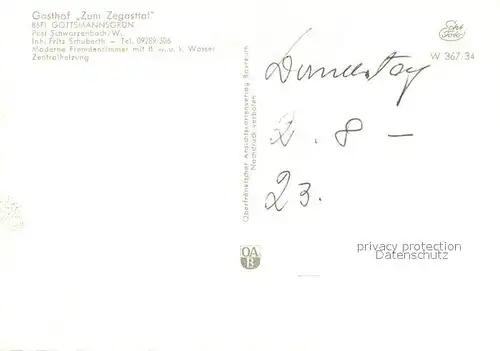 Gasthof „Zum Zegasttal"
8671 GOTTSMANNSGRÜN
Post Schwarzenbach/W.
Inh. Fritz Schuberth — Tel. 09289/506
Moderne Fremdenzimmer mit fl. w. u. k. Wasser
Zentralheizung
Oberfränkischer Ansichtskartenverlag Bayreuth
Nachdruck verboten
Echt
Foto
W 367/34
Donnerstag
2. 8 —
23.
OA
B
privacy protection
Datenschutz